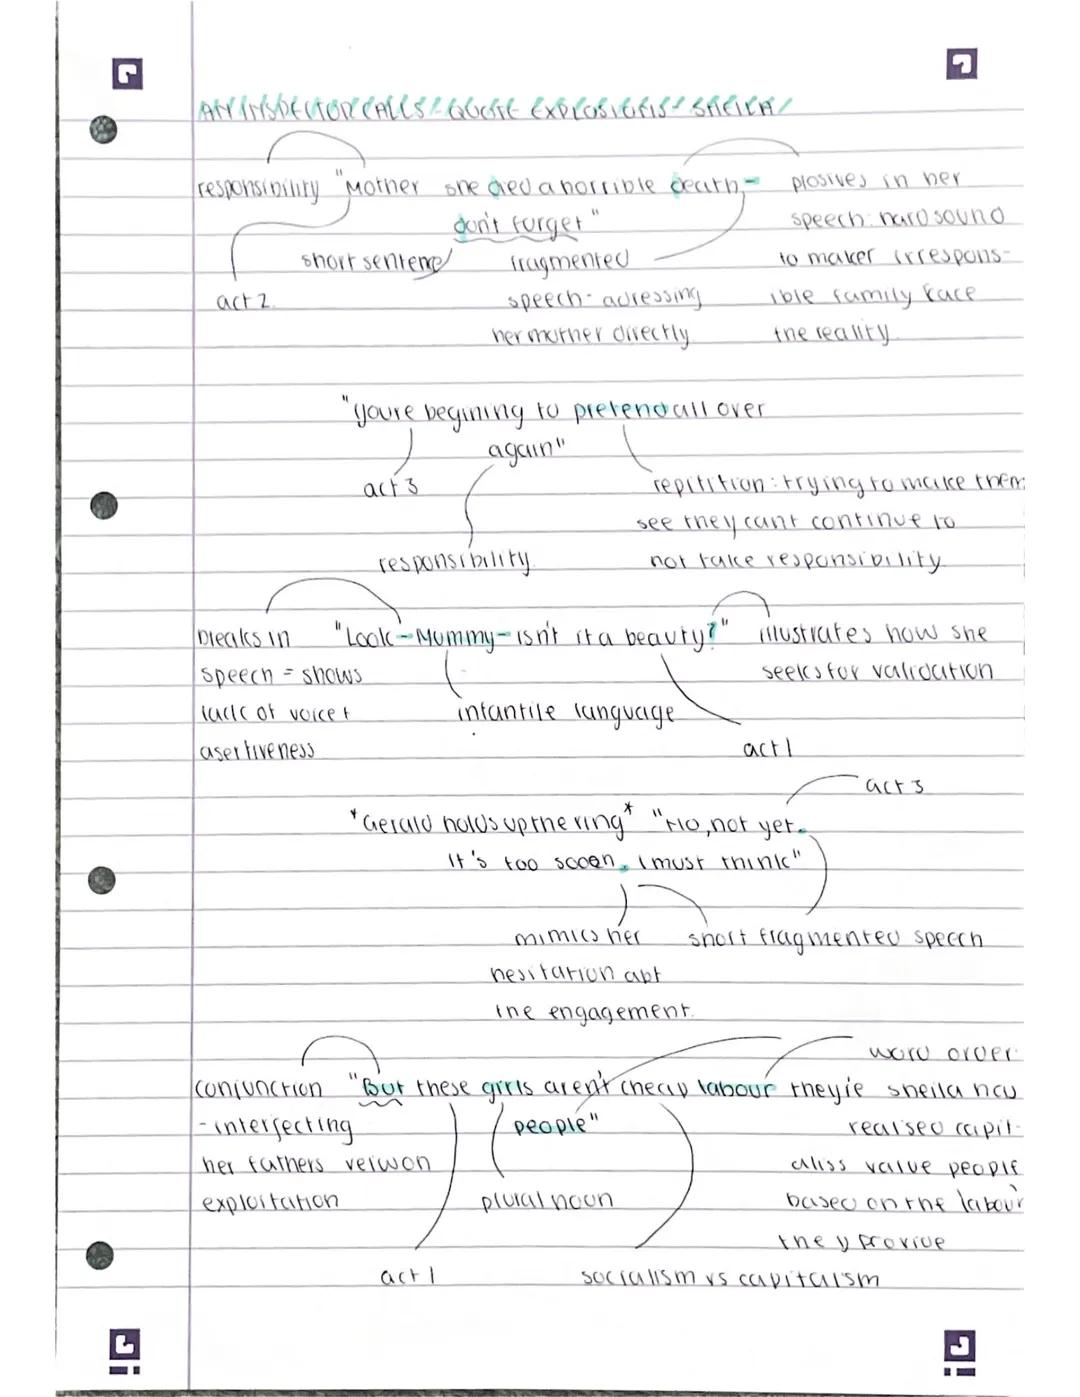 AN INSPECTOR CALLS - QUOTE EXPLOSIONS - SHEILA
responsibility "Mother she died a horrible death - plosives in her
don't forget" speech: hard sound
short sentence fragmented to maker irrespons-
act 2. speech - adressing ible family face
her mother directly the reality.
"youre begining to pretend all over
again"
act 3 repitition: trying to make them
see they cant continue to
responsibility. not take responsibility.
breaks in "Look - Mummy - isn't it a beauty?" illustrates how she
speech = shows seeks for validation
lack of voice + infantile language
asertiveness act 1
act 3
*Gerald holds up the ring* "No, not yet.
It's too sooen. I must think"
mimics her short fragmented speech
hesitation abt
the engagement.
word order:
conjunction "But these girls aren't cheap labour they're sheila
- intersecting people" realised capit-
her fathers on aliss value people
exploitation plural noun based on the labour
they provide
act 1 socialism vs capitalsm